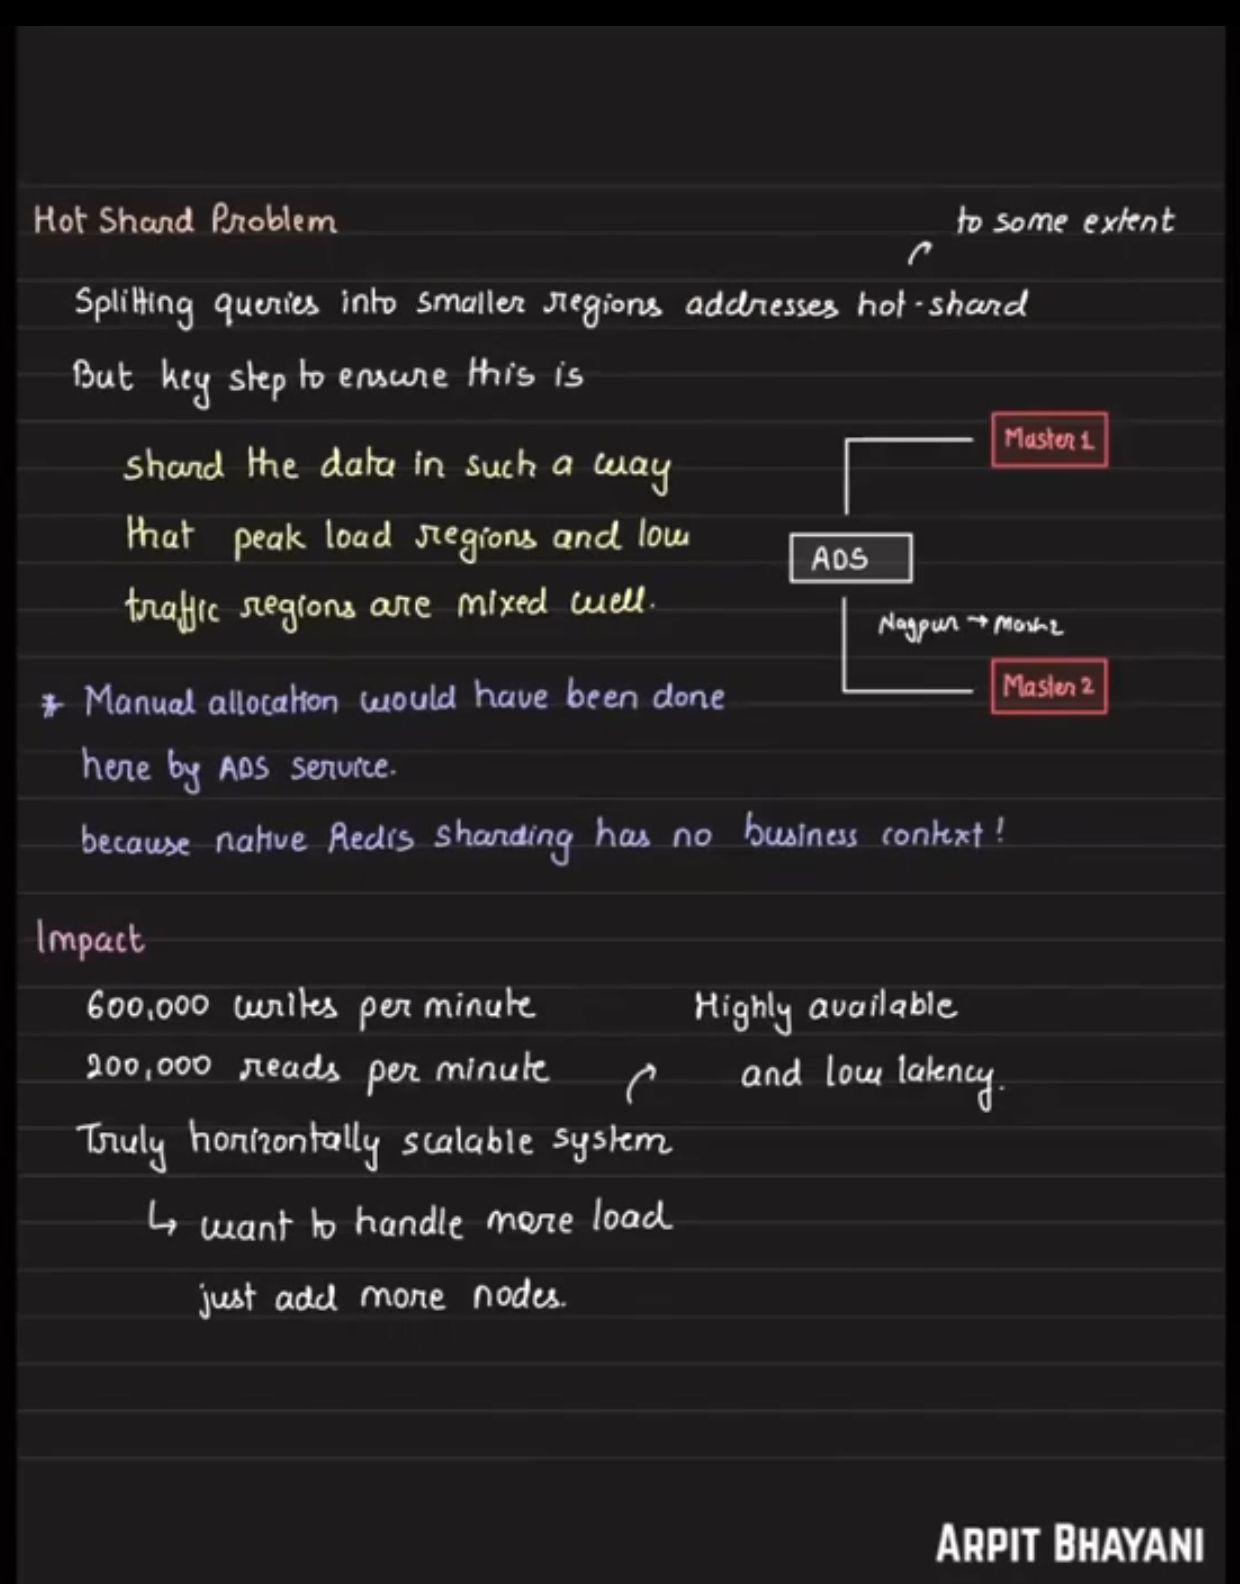 Hot Shard Problem
to some extent
Splitting queries into smaller regions addresses hot-shard
But key step to ensure this is
shard the data in such a way
that peak load regions and low
traffic regions are mixed well.
Master 1
ADS
Nagpur →
Master 2
* Manual allocation would have been done
here by ADS service.
because native Redis sharding has no business context!
Impact
600,000 writes per minute
200,000 reads per minute
Highly available
and low latency.
Truly horizontally scalable system
↳ want to handle more load
just add more nodes.
ARPIT BHAYANI